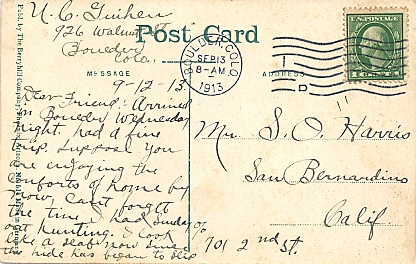 U. C. Guihen
926 Walnut St
Boulder
Colo.
Post Card
MESSAGE
ADDRESS
BOULDER, COLO.
SEP 13
8-AM
1913
D
U.S. POSTAGE
9-12-13
Dear Friend:- Arrived
in Boulder Wednesday
night. had a fine
trip. suppose you
are enjoying the
comforts of home by
now. Can't forget
the time I had Sunday
out hunting. I look
like a scab now since
the hide has began to slip
Mr. S. O. Harris
San Bernardino
Calif
% 701 2nd St.
Publ. by The Benham Company